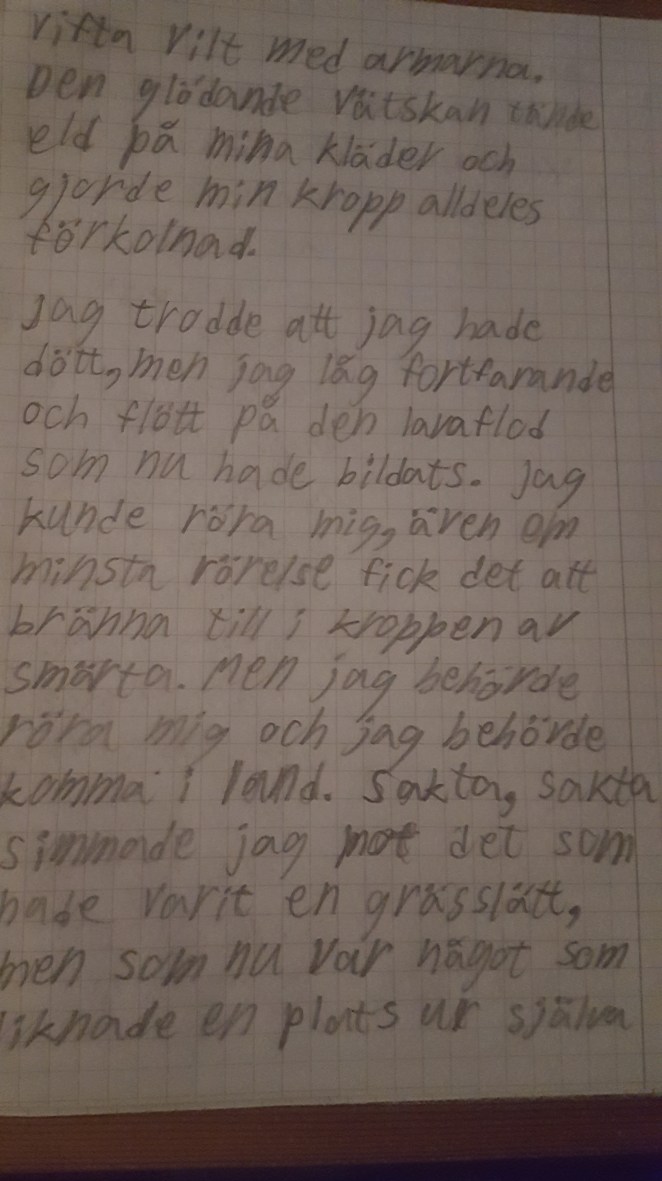 vifta vilt med armarna.
Den glödande vätskan tände
eld på mina kläder och
gjorde min kropp alldeles
förkolnad.
Jag trodde att jag hade
dött, men jag låg fortfarande
och flött på den lavaflod
som nu hade bildats. Jag
kunde röra mig, även om
minsta rörelse fick det att
bränna till i kroppen av
smärta. Men jag behövde
röra mig och jag behövde
komma i land. Sakta, sakta
simmade jag mot det som
hade varit en grässlätt,
men som nu var något som
liknade en plats ur själva